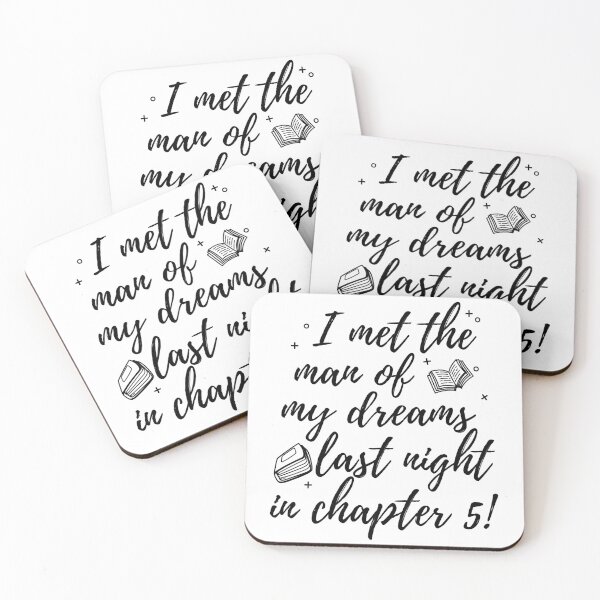 I met the
man of
my dreams
I met the
man of
my dreams
last night
5!
I met the
man of
my dreams
last ni
in chap
I met the
man of
my dreams
last night
in chapter 5!